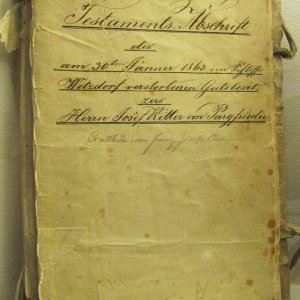 Testaments Abschrift
des
am 30ten Jänner 1863 im Schloss
Wetzdorf verstorbenen Gutsbesit,
zers
Herrn Josef Ritter von Pargfrieder